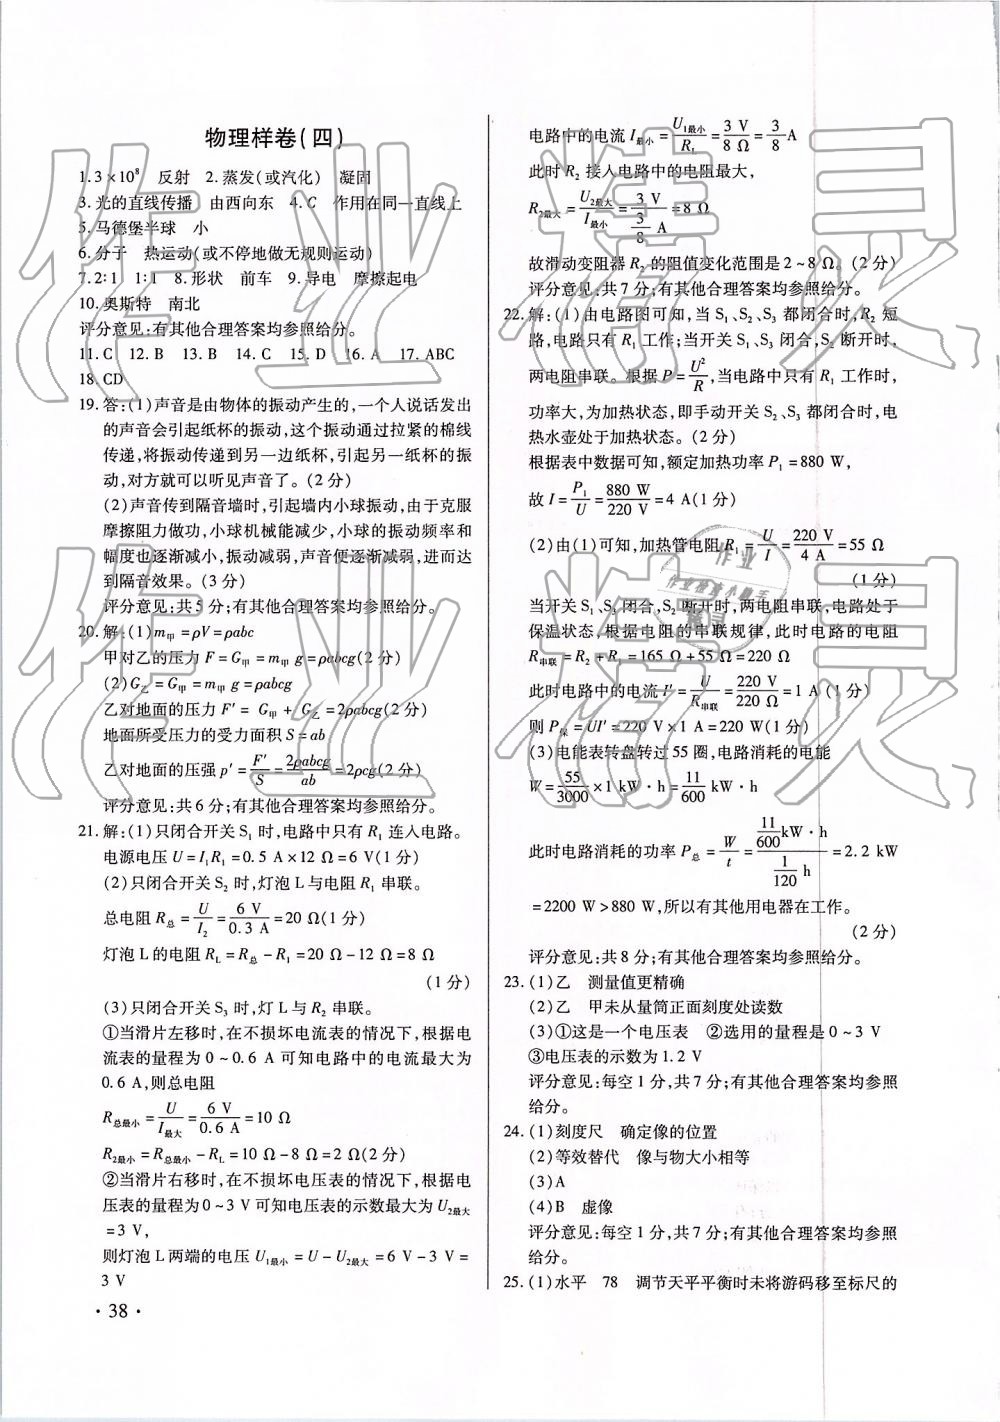 物理样卷(四)
1.3×10⁸　反射　2.蒸发(或汽化)　凝固
3.光的直线传播　由西向东　4.C　作用在同一直线上
5.马德堡半球　小
6.分子　热运动(或不停地做无规则运动)
7.2∶1　1∶1　8.形状　前车　9.导电　摩擦起电
10.奥斯特　南北
评分意见:有其他合理答案均参照给分。
11.C　12.B　13.B　14.C　15.D　16.A　17.ABC
18.CD
19.答:(1)声音是由物体的振动产生的,一个人说话发出
的声音会引起纸杯的振动,这个振动通过拉紧的棉线
传递,将振动传递到另一边纸杯,引起另一纸杯的振
动,对方就可以听见声音了。(2分)
(2)声音传到隔音墙时,引起墙内小球振动,由于克服
摩擦阻力做功,小球机械能减少,小球的振动频率和
幅度也逐渐减小,振动减弱,声音便逐渐减弱,进而达
到隔音效果。(3分)
评分意见:共5分;有其他合理答案均参照给分。
20.解:(1)m甲=ρV=ρabc
甲对乙的压力F=G甲=m甲g=ρabcg(2分)
(2)G乙=G甲=m甲g=ρabcg
乙对地面的压力F′=G甲+G乙=2ρabcg(2分)
地面所受压力的受力面积S=ab
乙对地面的压强p′=F′/S=2ρabcg/ab=2ρcg(2分)
评分意见:共6分;有其他合理答案均参照给分。
21.解:(1)只闭合开关S₁时,电路中只有R₁连入电路。
电源电压U=I₁R₁=0.5 A×12 Ω=6 V(1分)
(2)只闭合开关S₂时,灯泡L与电阻R₁串联。
总电阻R总=U/I₂=6 V/0.3 A=20 Ω(1分)
灯泡L的电阻R_L=R总-R₁=20 Ω-12 Ω=8 Ω
(1分)
(3)只闭合开关S₃时,灯L与R₂串联。
①当滑片左移时,在不损坏电流表的情况下,根据电
流表的量程为0~0.6 A可知电路中的电流最大为
0.6 A,则总电阻
R总最小=U/I最大=6 V/0.6 A=10 Ω
R₂最小=R总最小-R_L=10 Ω-8 Ω=2 Ω(2分)
②当滑片右移时,在不损坏电压表的情况下,根据电
压表的量程为0~3 V可知电压表的示数最大为U₂最大
=3 V,
则灯泡L两端的电压U₁最小=U-U₂最大=6 V-3 V=
3 V
·38·
电路中的电流I最小=U₁最小/R_L=3 V/8 Ω=3/8 A
此时R₂接入电路中的电阻最大,
R₂最大=U₂最大/I最小=3 V/(3/8 A)=8 Ω
故滑动变阻器R₂的阻值变化范围是2~8 Ω。(2分)
评分意见:共7分;有其他合理答案均参照给分。
22.解:(1)由电路图可知,当S₁、S₂、S₃都闭合时,R₂短
路,电路只有R₁工作;当开关S₁、S₃闭合,S₂断开时,
两电阻串联。根据P=U²/R,当电路中只有R₁工作时,
功率大,为加热状态,即手动开关S₂、S₃都闭合时,电
热水壶处于加热状态。(2分)
根据表中数据可知,额定加热功率P₁=880 W,
故I=P₁/U=880 W/220 V=4 A(1分)
(2)由(1)可知,加热管电阻R₁=U/I=220 V/4 A=55 Ω
(1分)
当开关S₁、S₃闭合,S₂断开时,两电阻串联,电路处于
保温状态,根据电阻的串联规律,此时电路的电阻
R串联=R₂+R₁=165 Ω+55 Ω=220 Ω
此时电路中的电流I′=U/R串联=220 V/220 Ω=1 A(1分)
则P保=UI′=220 V×1 A=220 W(1分)
(3)电能表转盘转过55圈,电路消耗的电能
W=55/3000×1 kW·h=11/600 kW·h
此时电路消耗的功率P总=W/t=(11/600 kW·h)/(1/120 h)=2.2 kW
=2200 W>880 W,所以有其他用电器在工作。
(2分)
评分意见:共8分;有其他合理答案均参照给分。
23.(1)乙　测量值更精确
(2)乙　甲未从量筒正面刻度处读数
(3)①这是一个电压表　②选用的量程是0~3 V
③电压表的示数为1.2 V
评分意见:每空1分,共7分;有其他合理答案均参照
给分。
24.(1)刻度尺　确定像的位置
(2)等效替代　像与物大小相等
(3)A
(4)B　虚像
评分意见:每空1分,共7分;有其他合理答案均参照
给分。
25.(1)水平　78　调节天平平衡时未将游码移至标尺的
作业精灵
作业精灵
作业
作业检查小助手
精灵